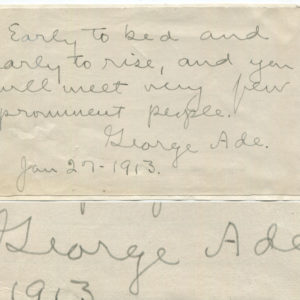 Early to bed and
early to rise, and you
will meet very few
prominent people.
George Ade.
Jan 27-1913.
George Ade
1913